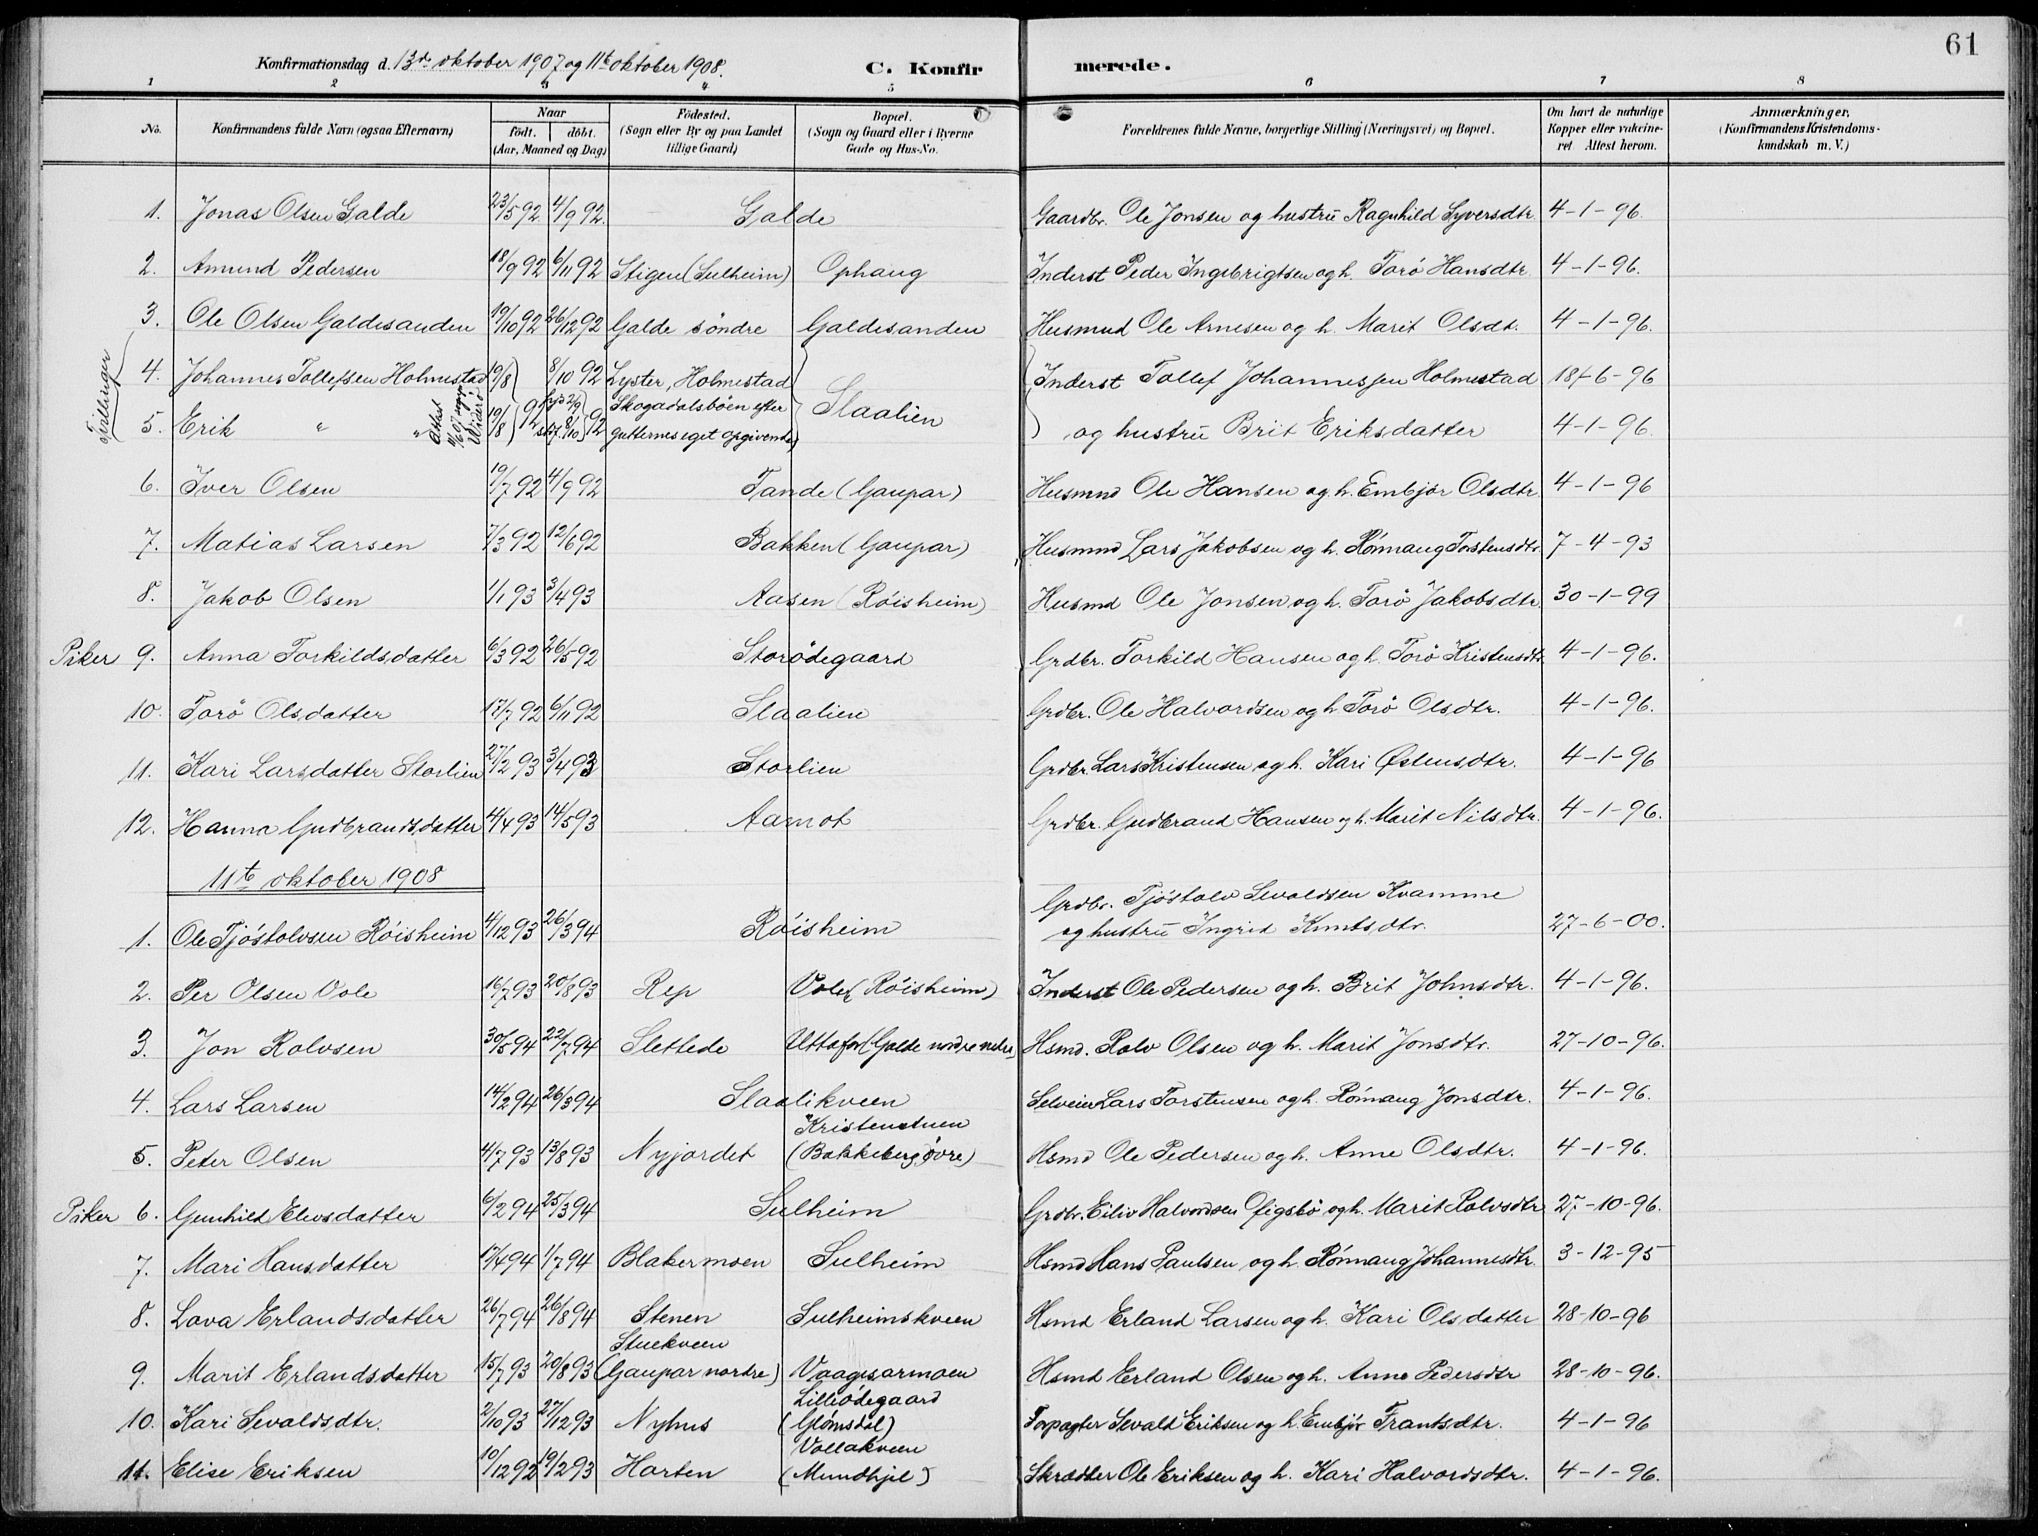 61
Konfirmationsdag d. 13de oktober 1907 og 11te oktober 1908.
C. Konfirmerede.
1 2 3 4 5 6 7 8
No. Konfirmandens fulde Navn (ogsaa Efternavn) Naar födt. döbt. (Aar, Maaned og Dag) Födested. (Sogn eller By og paa Landet tillige Gaard) Bopæl. (Sogn og Gaard eller i Byerne Gade og Hus-No. Forældrenes fulde Navne, borgerlige Stilling (Næringsvei) og Bopæl. Om havt de naturlige Kopper eller vakcineret Attest herom. Anmærkninger, (Konfirmandens Kristendomskundskab m. V.)
1. Jonas Olsen Galde 23/5 92 4/9 92. Galde Gaardbr. Ole Jonsen og hustru Ragnhild Syversdtr. 4-1-96.
2. Amund Pedersen 18/9 92 6/11 92 Stigen (Sulheim) Ophaug Inderst Peder Ingebrigtsen og h. Torø Hansdtr. 4-1-96.
3. Ole Olsen Galdesanden 19/10 92 26/12 92 Galde söndre Galdesanden Husmnd Ole Arnesen og h. Marit Olsdt. 4-1-96.
Tvillinger
4. Johannes Tollefsen Holmestad 19/8 92 8/10 92 Lyster, Holmestad Slaalien Inderst Tollef Johannessen Holmestad 18/-6-96
5. Erik " " 19/8 92 8/10 92 Skogadalsböen efter gutternes eget opgivende og hustru Brit Eriksdatter 4-1-96.
6. Iver Olsen 19/7 92 4/9 92 Tande (Gaupar) Husmnd Ole Hansen og h. Embjör Olsdtr. 4-1-96
7. Matias Larsen 7/3 92 12/6 92 Bakken (Gaupar) Husmnd Lars Jakobsen og h. Rönnaug Torstensdtr. 7-4-93
8. Jakob Olsen 1/1 93 3/4 93 Aasen (Röisheim) Husmd Ole Jonsen og h. Torö Jakobsdtr. 30-1-99
Piker 9. Anna Torkildsdatter 6/3 92 26/5 92 Storödegaard Grdbr. Torkild Hansen og h. Torö Kristensdtr. 4-1-96.
10. Torö Olsdatter 17/7 92 6/11 92 Slaalien Grdbr. Ole Halvordsen og h Torö Olsdtr. 4-1-96.
11. Kari Larsdatter Storlien 27/2 93 3/4 93 Storlien Grdbr. Lars Kristensen og h. Kari Østensdtr. 4-1-96
12. Hanna Gudbrandsdatter 4/4 93 14/5 93 Aamot Grdbr. Gudbrand Hansen og h. Marit Nilsdtr. 4-1-96.
11te oktober 1908
1. Ole Tjöstolvsen Röisheim 4/12 93 26/3 94 Röisheim Grdbr. Tjöstolv Sevaldsen Kvamme og hustru Ingrid Knutsdtr. 27-6-00.
2. Per Olsen Vole 16/7 93 20/8 93 Rep Vole (Röisheim) Inderst Ole Pedersen og h. Brit Johnsdtr. 4-1-96.
3. Jon Rolvsen 30/5 94 22/7 94 Slettede Uttafor (Galde nordre nedre) Hsmd. Rolv Olsen og h. Marit Jonsdtr. 27-10-96.
4. Lars Larsen 14/2 94 26/3 94 Slaalikveen Selveier Lars Torstensen og h. Römaug Jonsdtr. 4-1-96.
5. Peter Olsen 4/7 93 13/8 93 Nyjordet Kristenstuen (Bakkeberg övre) Hsmd Ole Pedersen og h. Anne Olsdtr. 4-1-96.
Piker 6. Gunhild Elivsdatter 6/2 94 25/3 94 Sulheim Grdbr. Eiliv Halvordsen Øigsbö og h. Marit Rolvsdtr 27-10-96.
7. Mari Hansdatter 17/4 94 1/7 94 Blakermoen Sulheim Hsmd Hans Paulsen og h. Rönnaug Johannesdtr. 3-12-95
8. Lava Erlandsdatter 26/7 94 26/8 94 Stenen Sulheimskveen Hsmd Erland Larsen og h. Kari Olsdatter 28-10-96
9. Marit Erlandsdatter 15/7 93 20/8 93 Stuekveen (Gaupar nordre) Vaagesarmoen Hsmd Erland Olsen og h. Anne Pedersdtr 28-10-96.
10. Kari Sevaldsdtr. 2/10 93 27/12 93 Nyhus Lilleödegaard (Glömsdal) Forpagter Sevald Eriksen og h Embjör Frantsdtr. 4-1-96
11. Elise Eriksen 10/12 92 19/2 93 Harten Vollakveen (Mundhjel) Skrædder Ole Eriksen og h. Kari Halvordsdtr. 4-1-96.